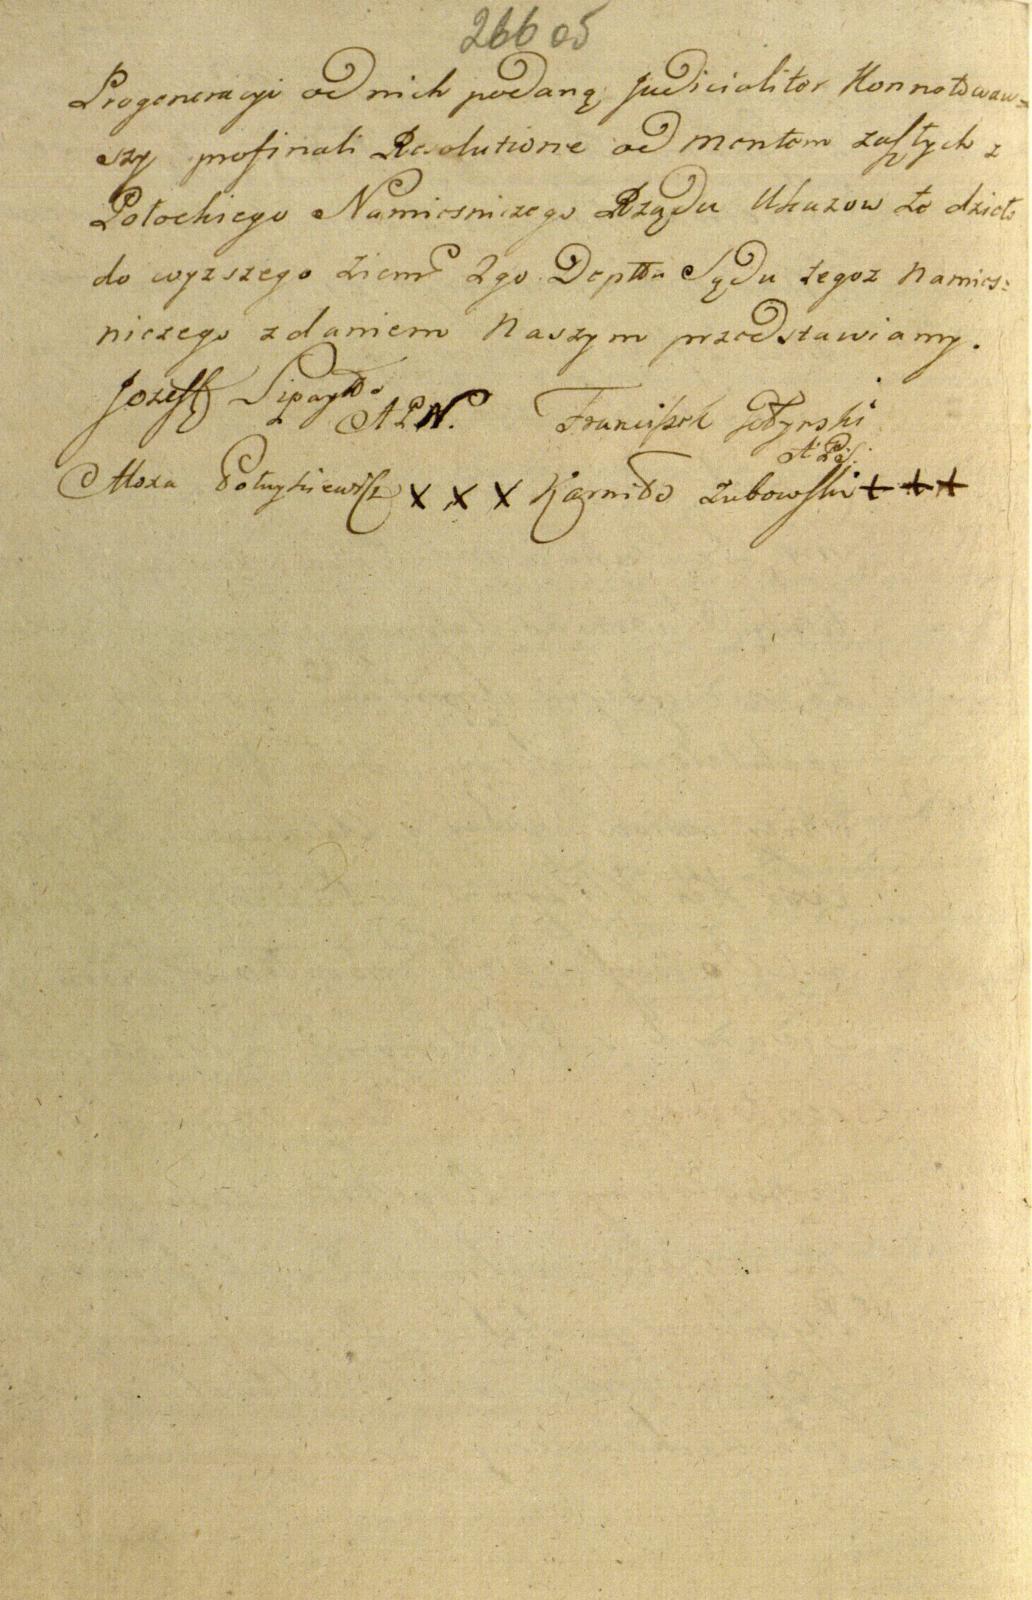 266 об
Progeneracyi od nich podaną judicialiter Konnotowaw=
szy pro finali Resolutione ad mentem zaszłych z
Połockiego Namiesniczego Rządu Ukazow to dzieło
do wyzszego Ziems 2go Deptłu Sądu tegoz Namies=
niczego z daniem Naszym przedstawiamy.
Jozeff
APN. Franciszek
x x x Kamiło Zubowski + + +